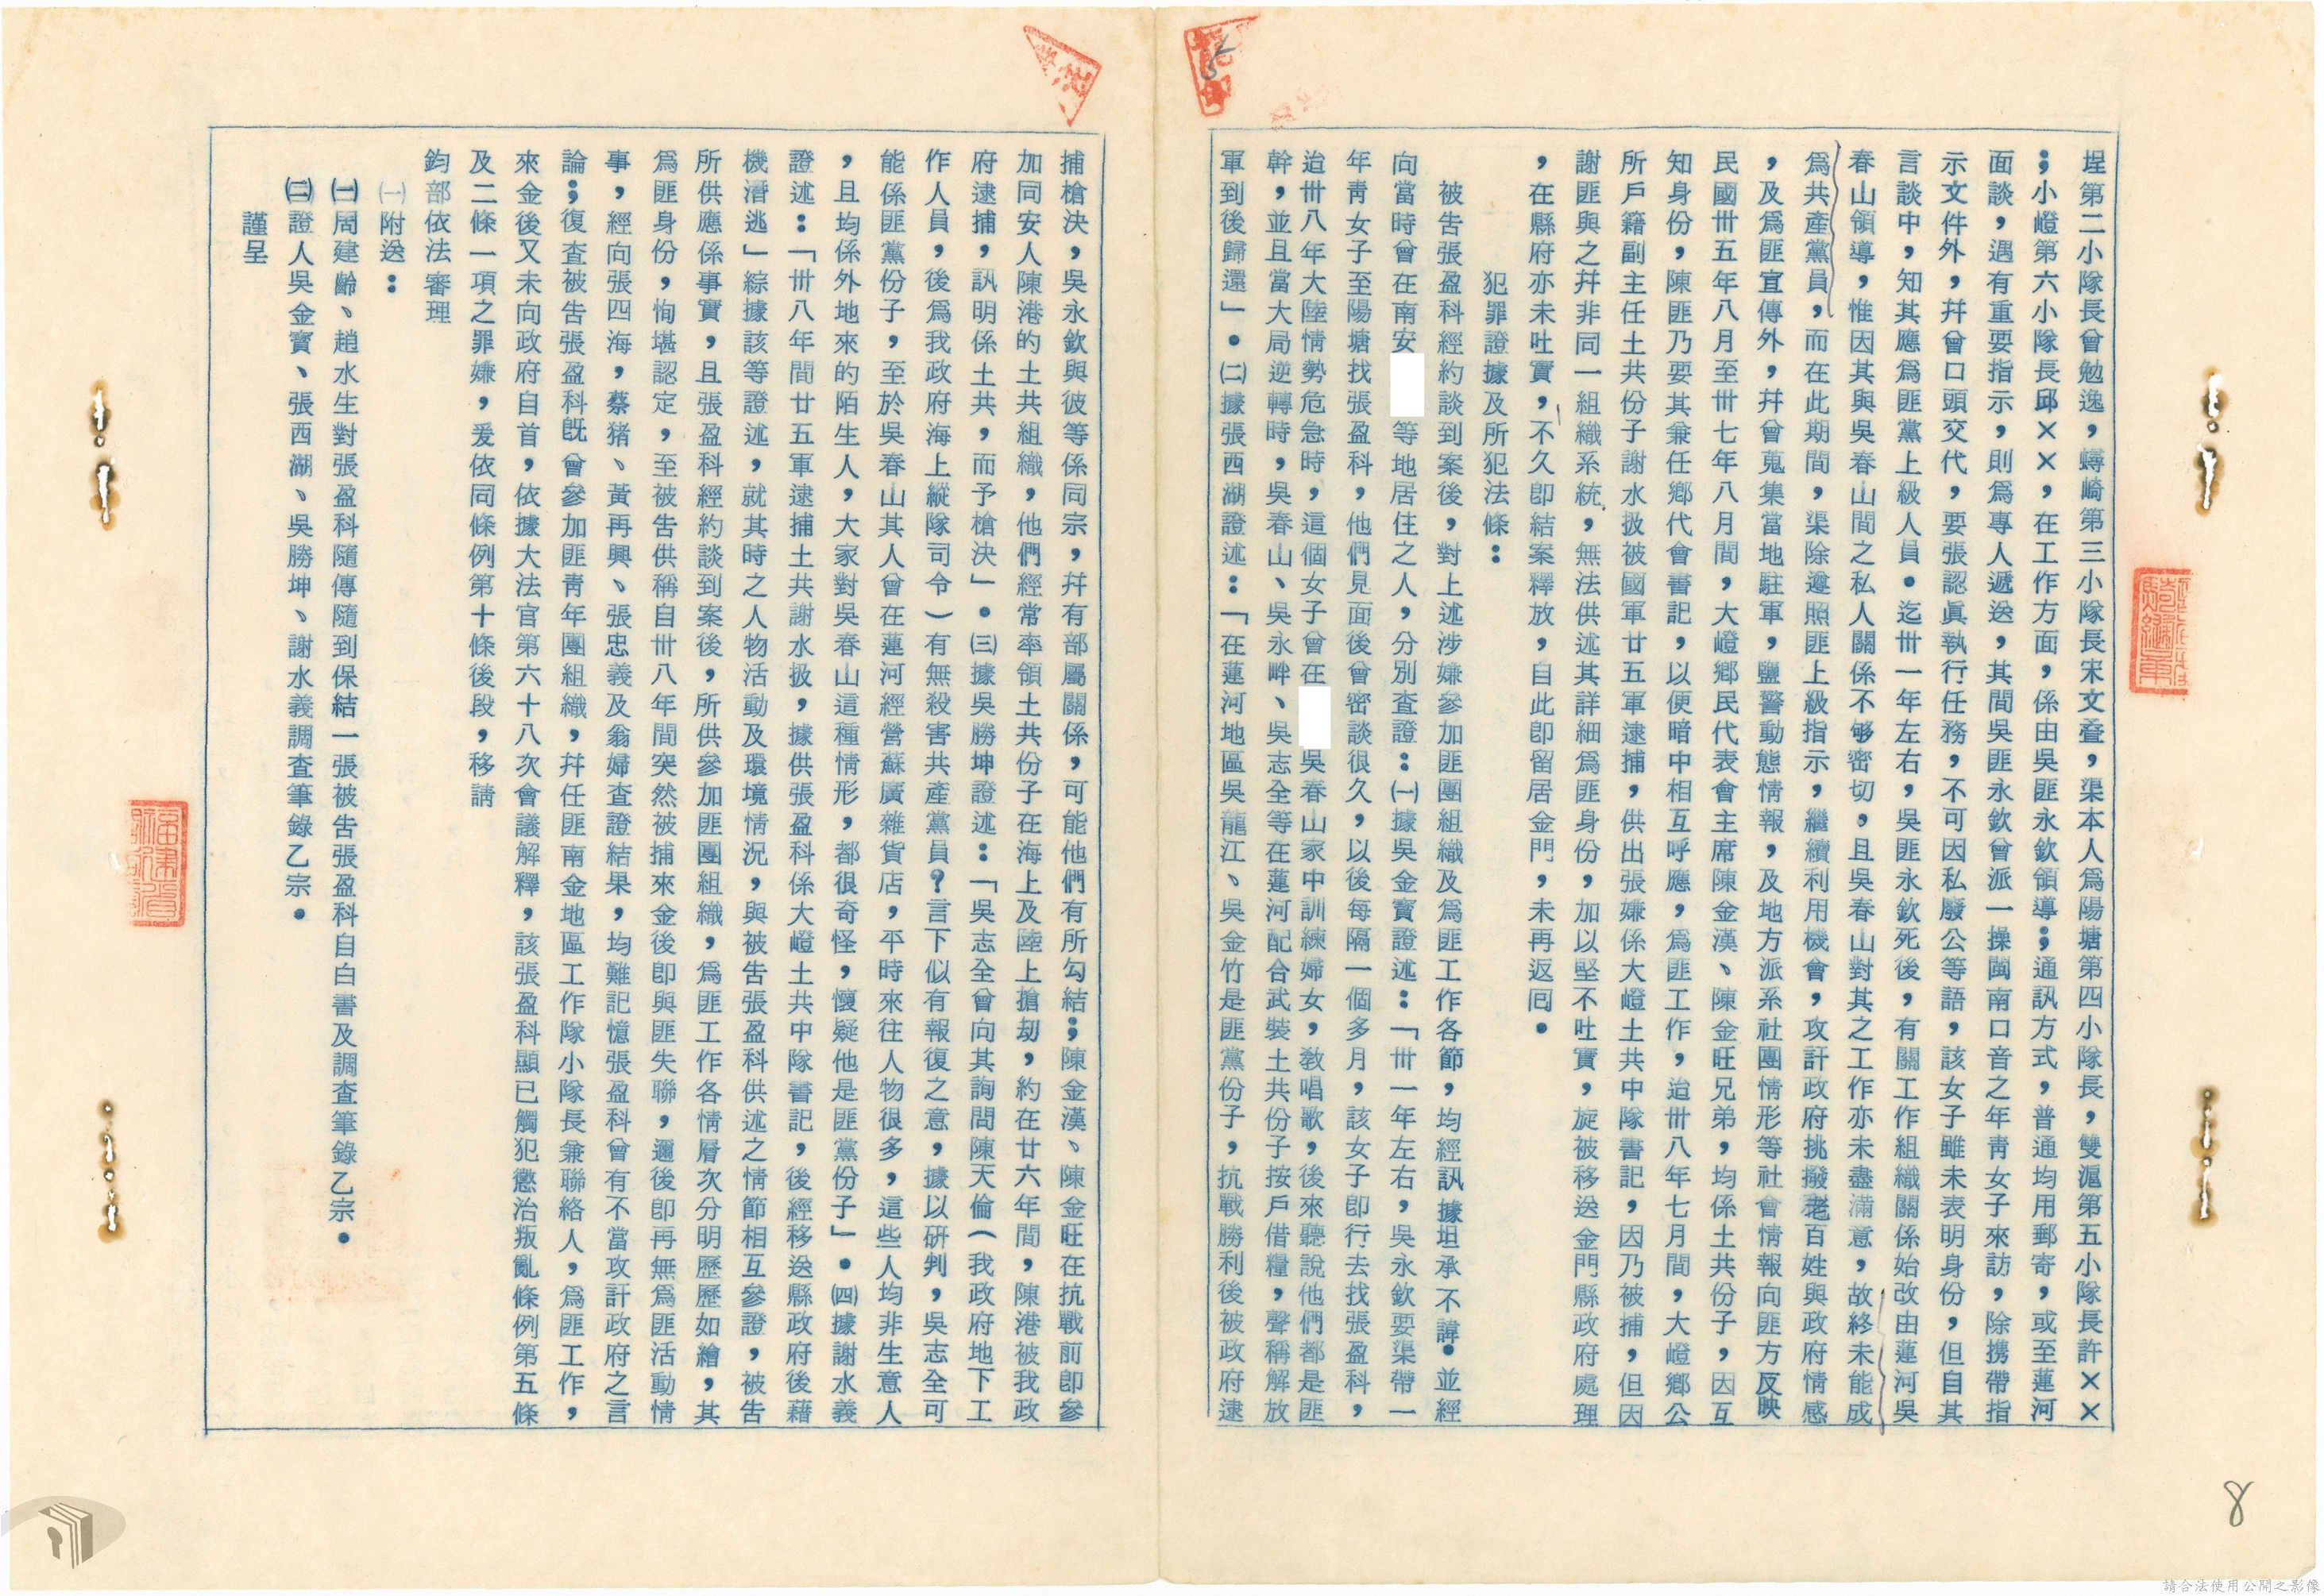 埕第二小隊長曾勉逸，蟳崎第三小隊長宋文叠，渠本人爲陽塘第四小隊長，雙滬第五小隊長許××
；小嶝第六小隊長邱××，在工作方面，係由吳匪永欽領導；通訊方式，普通均用郵寄，或至蓮河
面談，遇有重要指示，則爲專人遞送，其間吳匪永欽曾派一操閩南口音之年靑女子來訪，除携帶指
示文件外，幷曾口頭交代，要張認眞執行任務，不可因私廢公等語，該女子雖未表明身份，但自其
言談中，知其應爲匪黨上級人員。迄卅一年左右，吳匪永欽死後，有關工作組織關係始改由蓮河吳
春山領導，惟因其與吳春山間之私人關係不够密切，且吳春山對其之工作亦未盡滿意，故終未能成
爲共產黨員，而在此期間，渠除遵照匪上級指示，繼續利用機會，攻訐政府挑撥老百姓與政府情感
，及爲匪宣傳外，幷曾蒐集當地駐軍，鹽警動態情報，及地方派系社團情形等社會情報向匪方反映
民國卅五年八月至卅七年八月間，大嶝鄉民代表會主席陳金漢、陳金旺兄弟，均係土共份子，因互
知身份，陳匪乃要其兼任鄉代會書記，以便暗中相互呼應，爲匪工作，迨卅八年七月間，大嶝鄉公
所戶籍副主任土共份子謝水扱被國軍廿五軍逮捕，供出張嫌係大嶝土共中隊書記，因乃被捕，但因
謝匪與之幷非同一組織系統，無法供述其詳細爲匪身份，加以堅不吐實，旋被移送金門縣政府處理
，在縣府亦未吐實，不久即結案釋放，自此即留居金門，未再返囘。
犯罪證據及所犯法條：
被吿張盈科經約談到案後，對上述涉嫌參加匪團組織及爲匪工作各節，均經訊據坦承不諱。並經
向當時曾在南安　　等地居住之人，分別查證：㈠據吳金寶證述：「卅一年左右，吳永欽要渠帶一
年靑女子至陽塘找張盈科，他們見面後曾密談很久，以後每隔一個多月，該女子即行去找張盈科，
迨卅八年大陸情勢危急時，這個女子曾在　　吳春山家中訓練婦女，敎唱歌，後來聽說他們都是匪
幹，並且當大局逆轉時，吳春山、吳永衅、吳志全等在蓮河配合武裝土共份子按戶借糧，聲稱解放
軍到後歸還」。㈡據張西湖證述：「在蓮河地區吳龍江、吳金竹是匪黨份子，抗戰勝利後被政府逮
捕槍決，吳永欽與彼等係同宗，幷有部屬關係，可能他們有所勾結；陳金漢、陳金旺在抗戰前即參
加同安人陳港的土共組織，他們經常率領土共份子在海上及陸上搶刧，約在廿六年間，陳港被我政
府逮捕，訊明係土共，而予槍決」。㈢據吳勝坤證述：「吳志全曾向其詢問陳天倫（我政府地下工
作人員，後爲我政府海上縱隊司令）有無殺害共產黨員？言下似有報復之意，據以硏判，吳志全可
能係匪黨份子，至於吳春山其人曾在蓮河經營蘇廣雜貨店，平時來往人物很多，這些人均非生意人
，且均係外地來的陌生人，大家對吳春山這種情形，都很奇怪，懷疑他是匪黨份子」。㈣據謝水義
證述：「卅八年間廿五軍逮捕土共謝水扱，據供張盈科係大嶝土共中隊書記，後經移送縣政府後藉
機潛逃」綜據該等證述，就其時之人物活動及環境情況，與被吿張盈科供述之情節相互參證，被吿
所供應係事實，且張盈科經約談到案後，所供參加匪團組織，爲匪工作各情層次分明歷歷如繪，其
爲匪身份，恂堪認定，至被吿供稱自卅八年間突然被捕來金後即與匪失聯，邇後即再無爲匪活動情
事，經向張四海，蔡猪、黃再興、張忠義及翁婦查證結果，均難記憶張盈科曾有不當攻訐政府之言
論；復查被吿張盈科旣曾參加匪靑年團組織，幷任匪南金地區工作隊小隊長兼聯絡人，爲匪工作，
來金後又未向政府自首，依據大法官第六十八次會議解釋，該張盈科顯已觸犯懲治叛亂條例第五條
及二條一項之罪嫌，爰依同條例第十條後段，移請
鈞部依法審理
㈠附送：
㈠周建齡、趙水生對張盈科隨傳隨到保結一張被吿張盈科自白書及調查筆錄乙宗。
㈡證人吳金寶、張西湖、吳勝坤、謝水義調查筆錄乙宗。
謹呈
8
請合法使用公開之影像